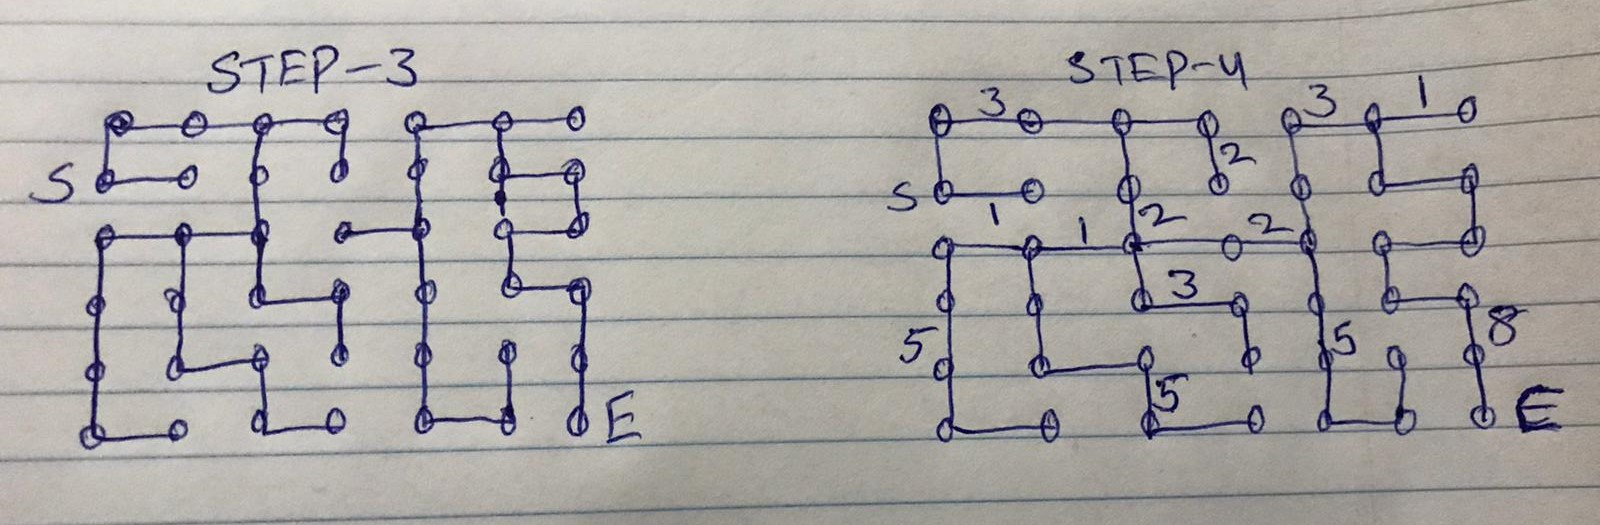 STEP-3 STEP-4
3 3 1
2
S S
1 1 2 2
3
5 5 8
5
E E